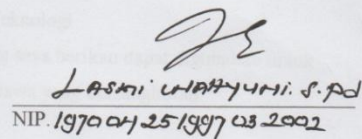 LASMI WAHYUNI. S.Pd
NIP. 197004251997032002